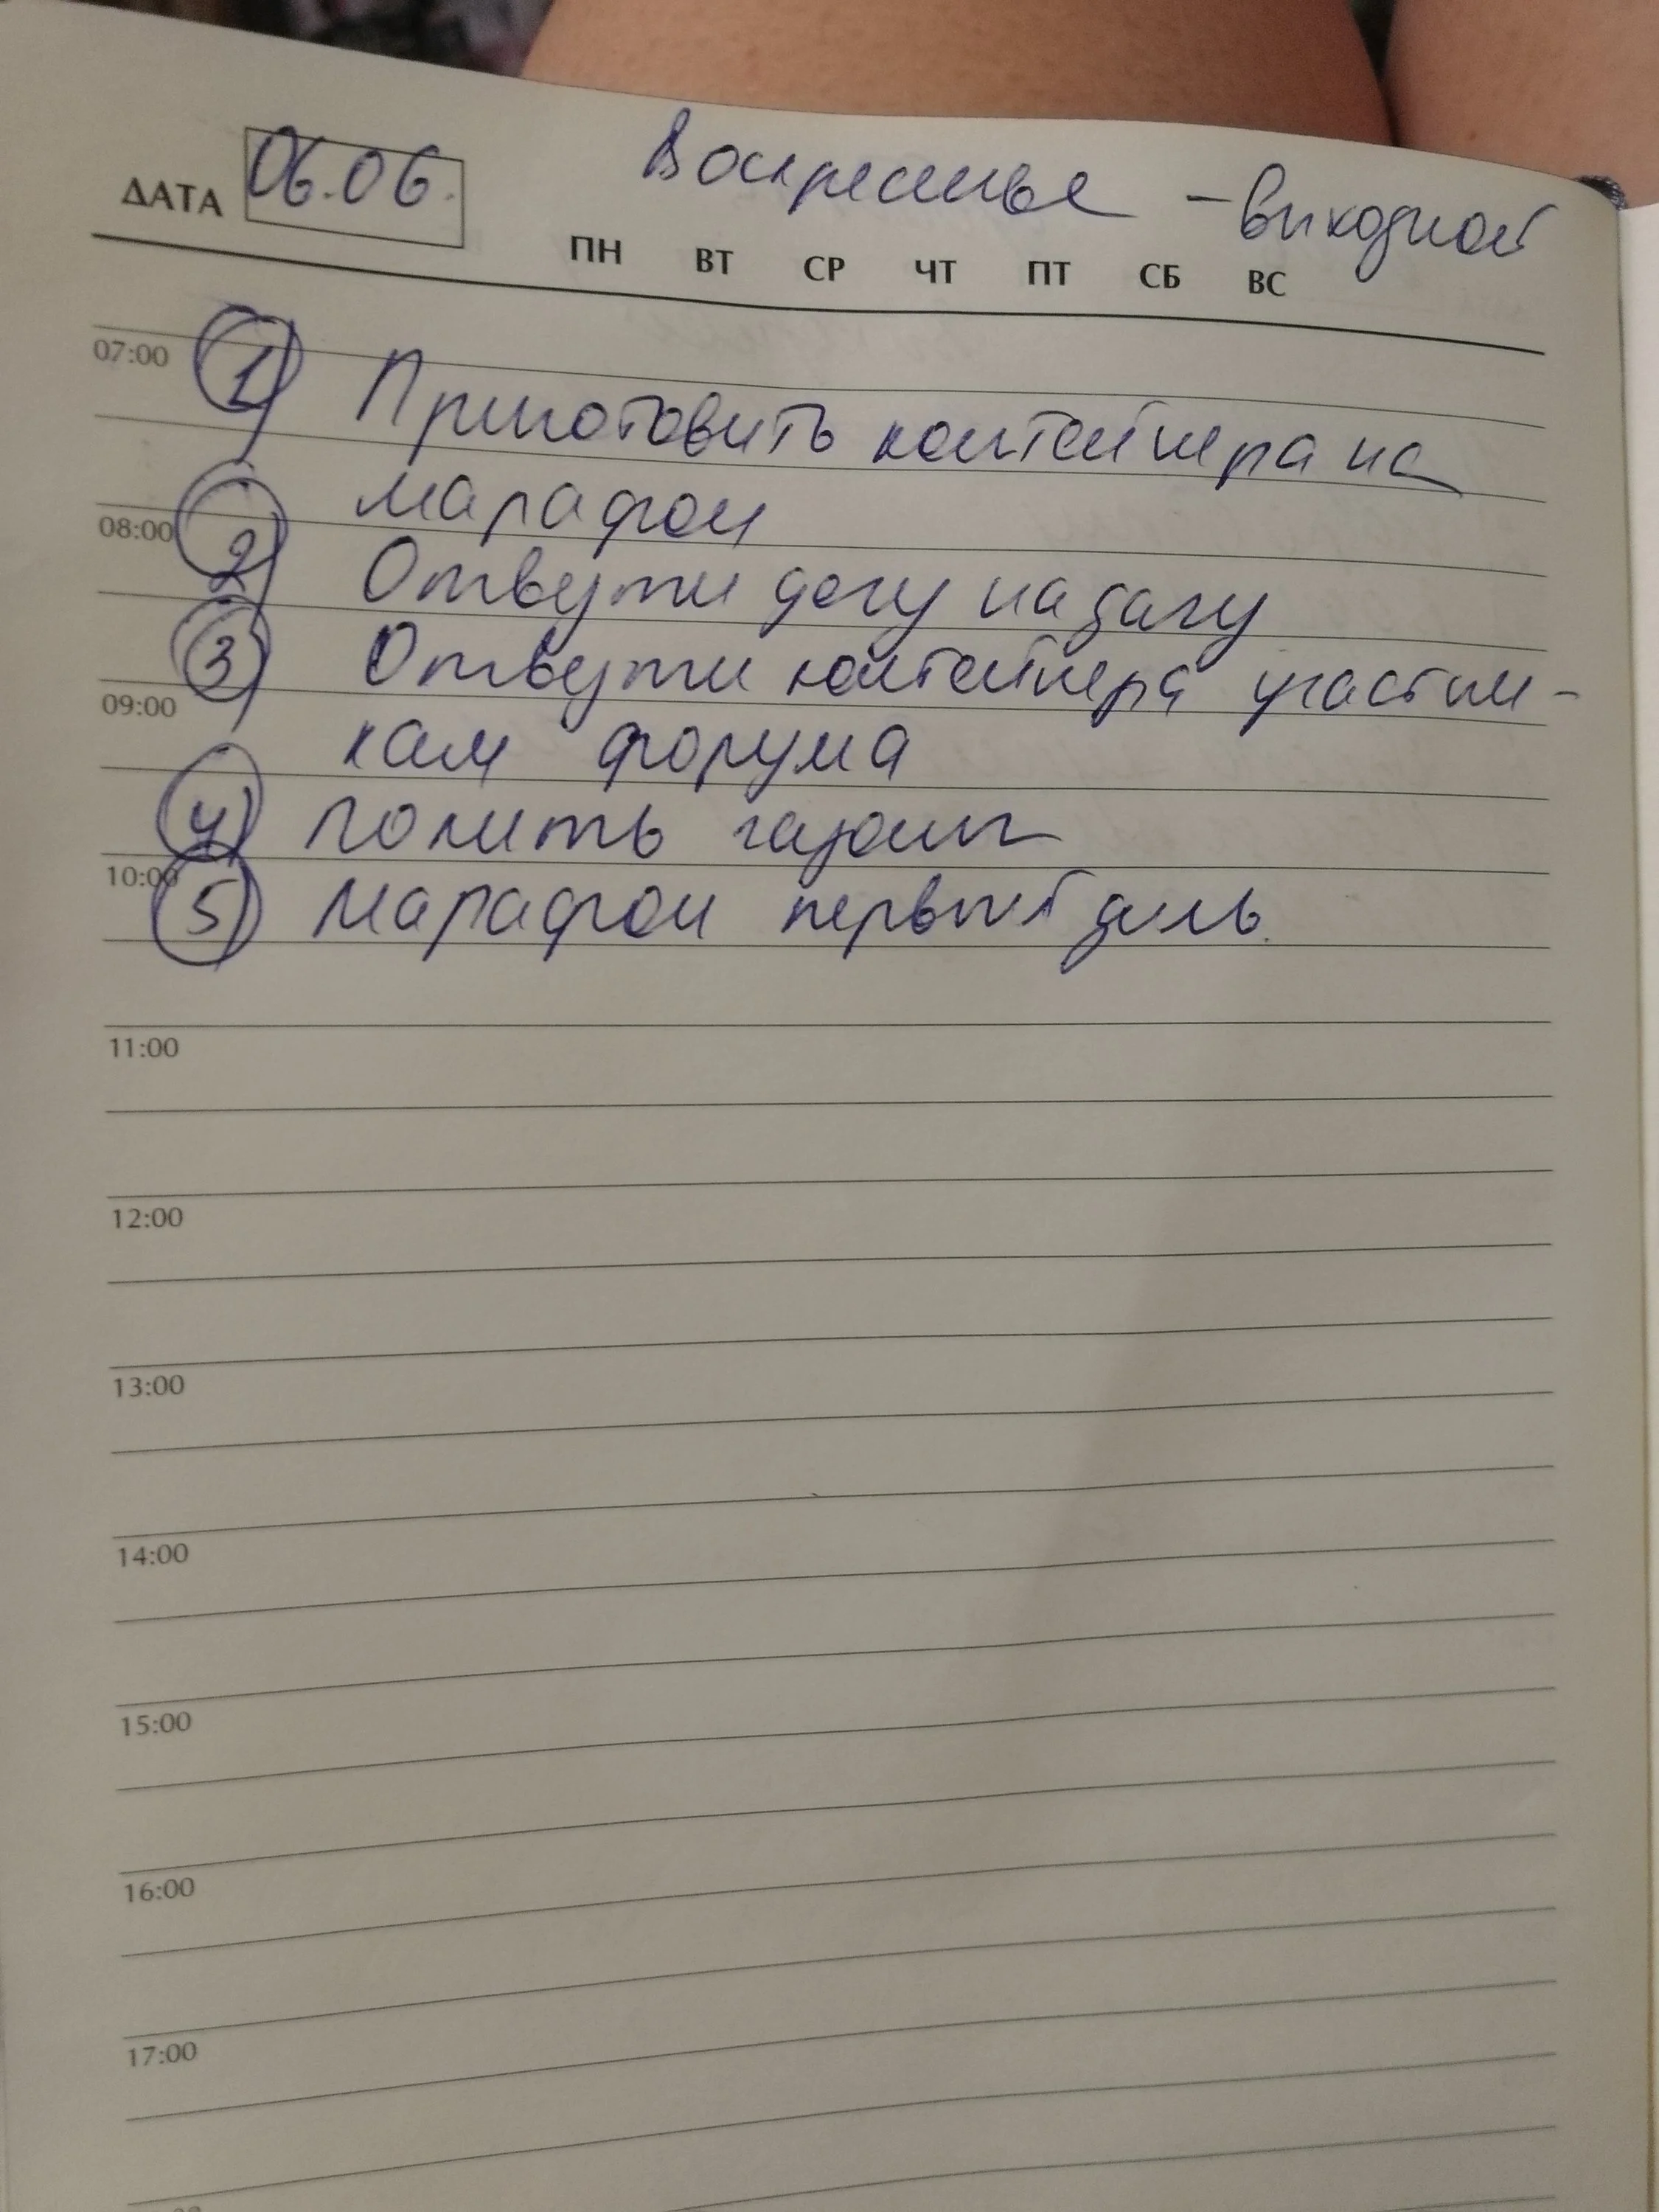 Воскресенье - выходной
ДАТА 06.06.
ПН ВТ СР ЧТ ПТ СБ ВС
07:00 1) Приготовить контейнера на
марафон
08:00 2) Отвезти дочу на дачу
3) Отвезти контейнера участни-
09:00
кам форума
4) Полить газон
10:00 5) Марафон первый день.
11:00
12:00
13:00
14:00
15:00
16:00
17:00